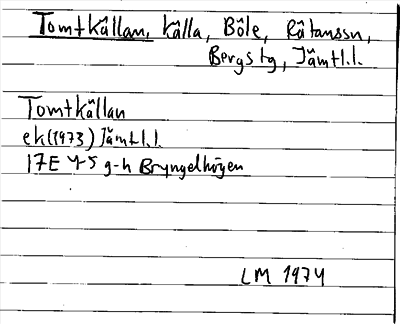 Tomtkällan, källa, Böle, Rätanssn,
Bergs tg, Jämtl.l.
Tomtkällan
ek(1973) Jämtl.l.
17E 4-5 g-h Bryngelhögen
LM 1974